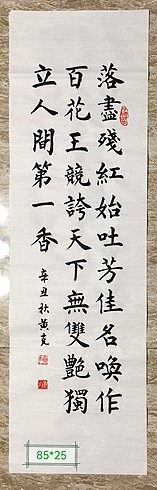 落盡殘紅始吐芳佳名喚作
百花王競誇天下無雙艷獨
立人間第一香
辛丑秋黃克
85*25